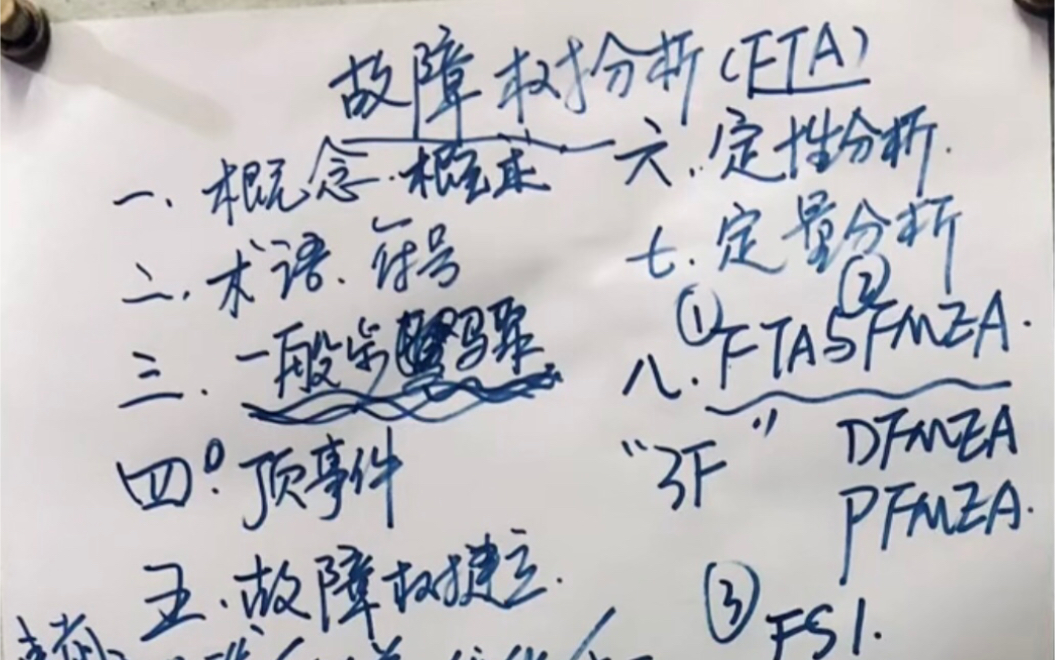 故障树分析(FTA)
一、概念.概述
二、术语、符号
三、一般步骤
四、顶事件
五、故障树建立.
六、定性分析.
七、定量分析
① ②
八、FTA与FMEA.
“3F” DFMEA
PFMEA.
③ FS1.